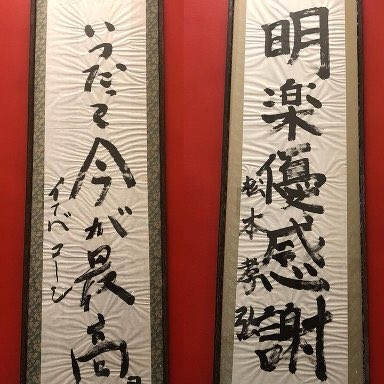 いつだって今が最高
イナバ コーシ
明楽優感謝
松本孝弘